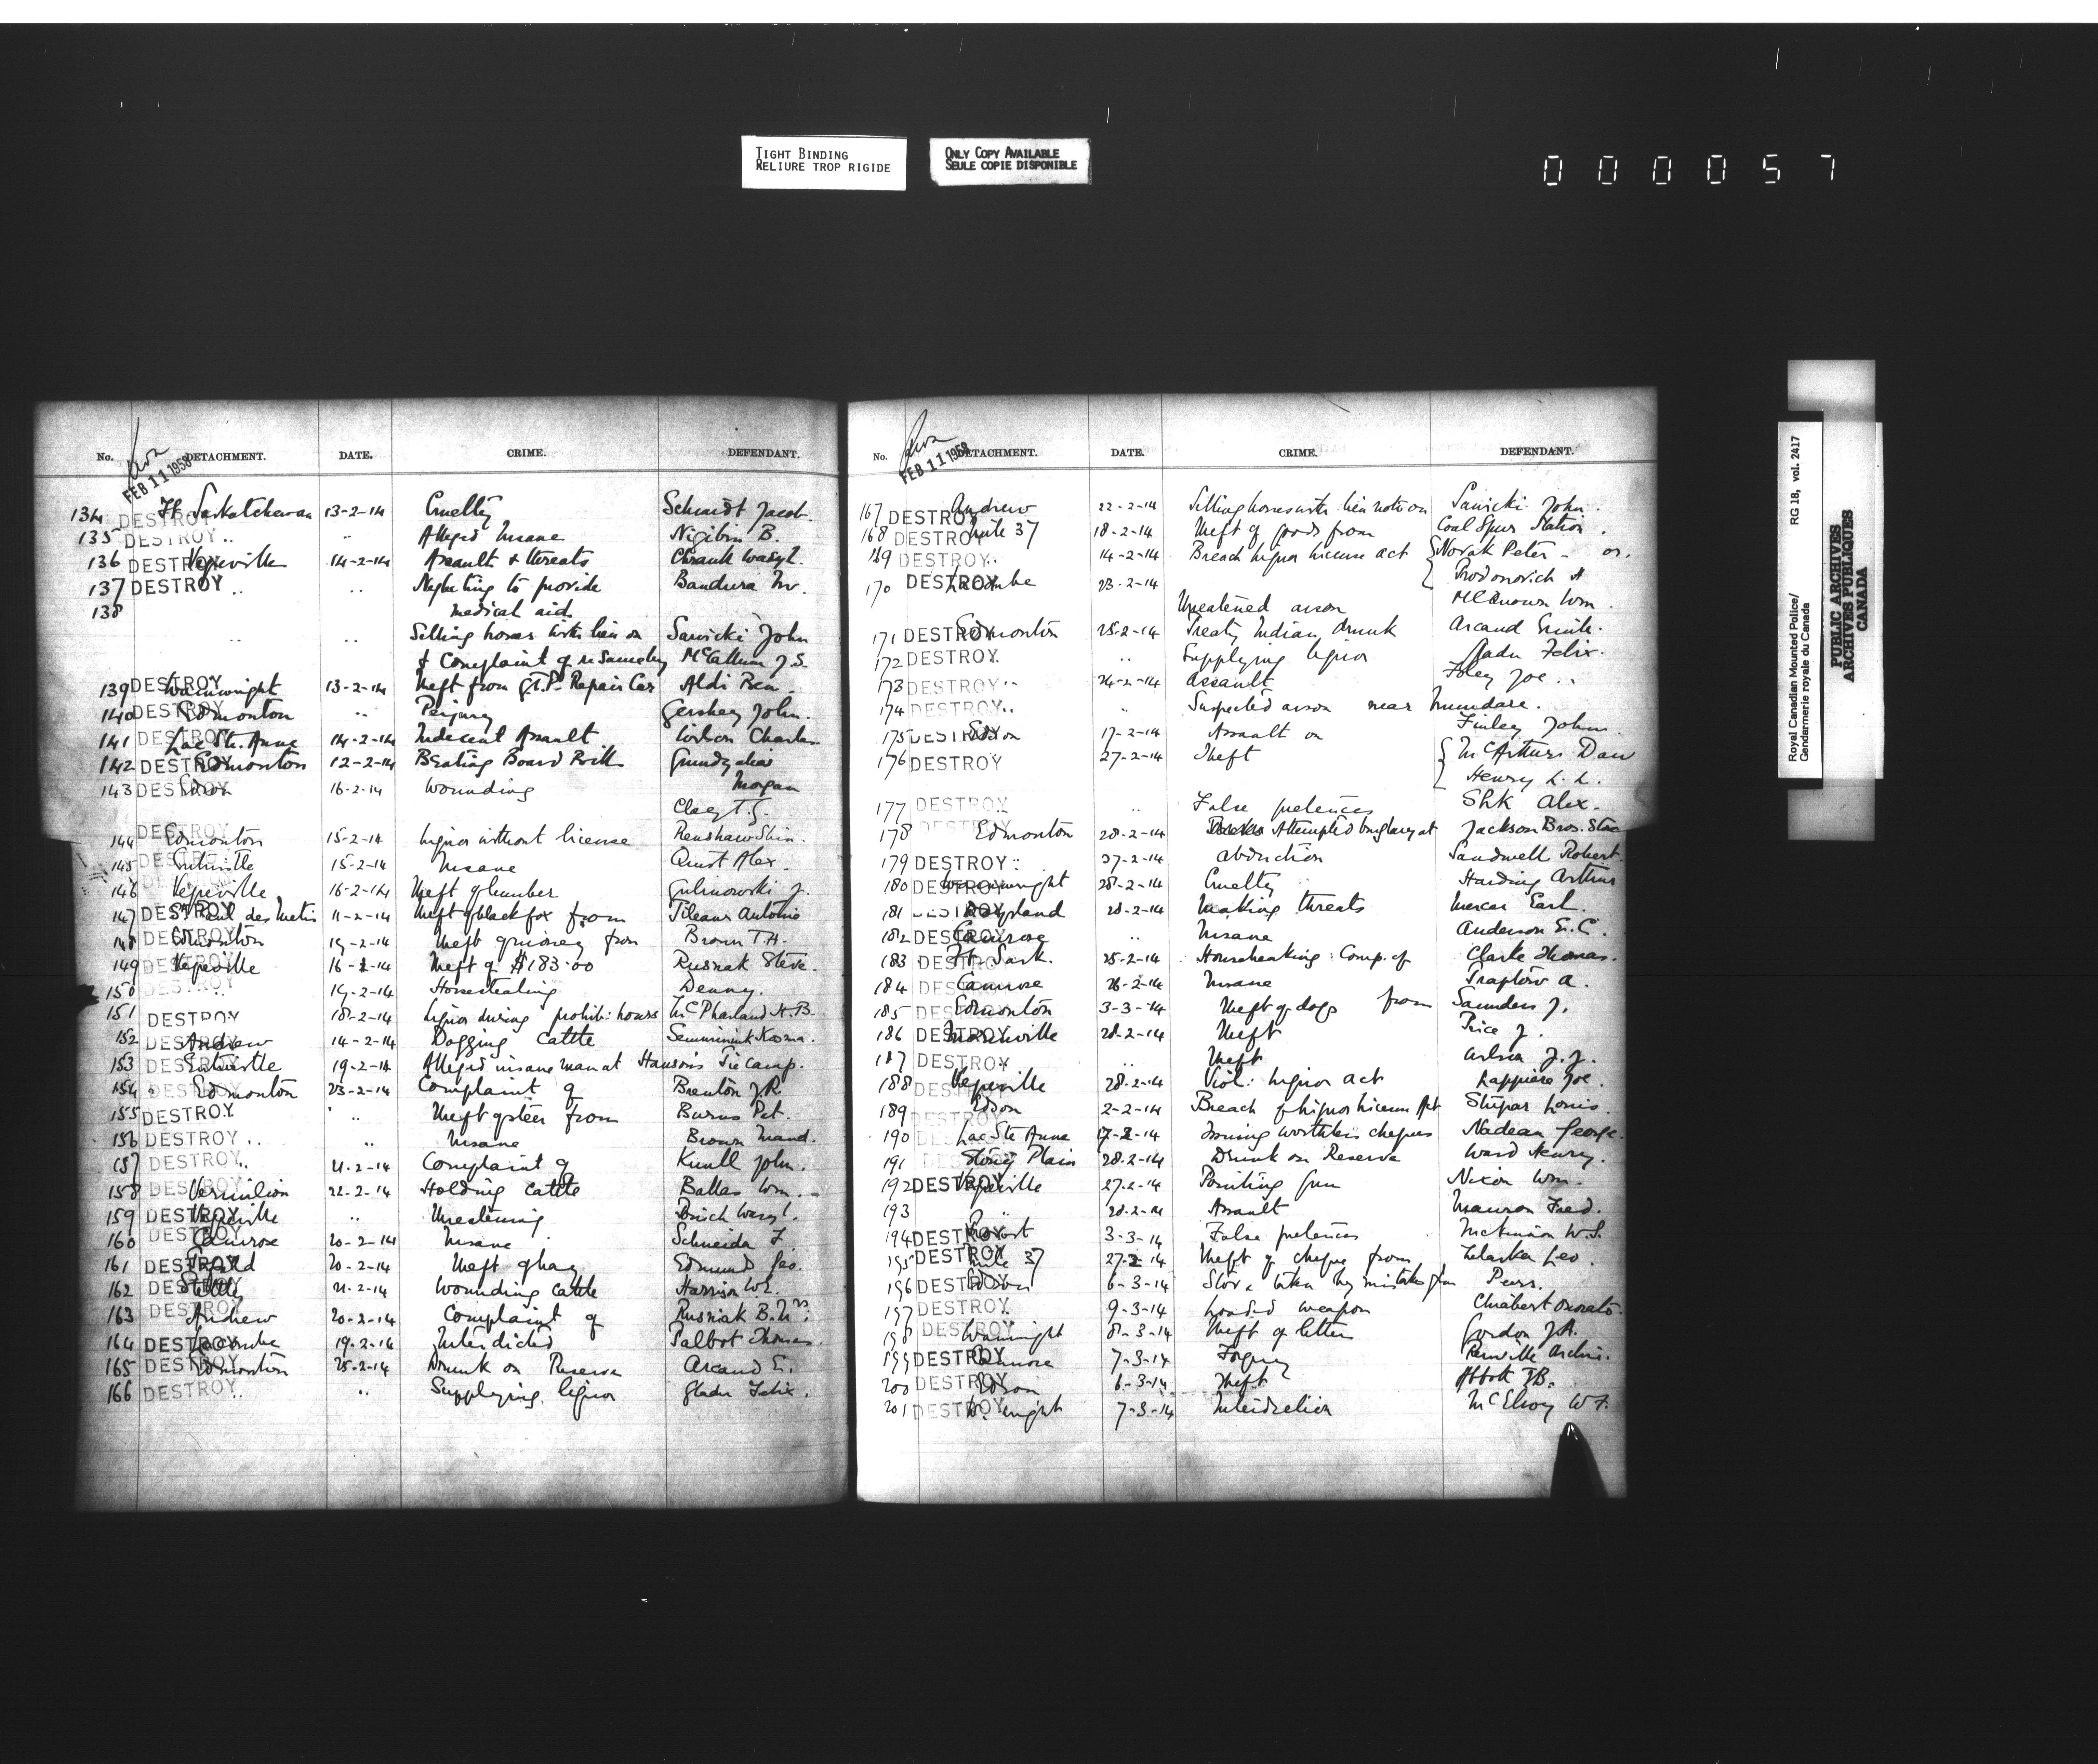 TIGHT BINDING
RELIURE TROP RIGIDE
ONLY COPY AVAILABLE
SEULE COPIE DISPONIBLE
000057
No. DETACHMENT. DATE. CRIME. DEFENDANT.
FEB 11 1958
134 Ft Saskatchewan 13-2-14 Cruelty Schmidt Jacob.
DESTROY
135 DESTROY .. .. Alleged Insane B.
136 DESTROY Vegreville 14-2-14 Assault & threats Wasyl.
137 DESTROY .. .. Neglecting to provide Bandura
138 medical aid
.. .. Selling horses with lien on Sawicki John
& Complaint of McCallum J.S.
139 DESTROY Wainwright 13-2-14 Theft from G.T.P. Repair Car Aldi Ben.
140 DESTROY Edmonton .. Perjury Gershey John.
141 DESTROY Lac Ste. Anne 14-2-14 Indecent Assault Charles
142 DESTROY Edmonton 12-2-14 Beating Board Bill
143 DESTROY Edson 16-2-14 Wounding Morgan
T.G.
DESTROY
144 Edmonton 15-2-14 Liquor without license Renshaw
145 DESTROY Entwistle 15-2-14 Insane Alex.
146 Vegreville 16-2-14 Theft of lumber Gulinowski J.
147 DESTROY St Paul des Metis 11-2-14 Theft of black fox from Antonio
148 DESTROY Edmonton 19-2-14 Theft of money from Brown T.H.
149 DESTROY Vegreville 16-2-14 Theft of $183.00 Rusnak Steve.
150 DESTROY .. 19-2-14 Horsestealing Denny.
151 DESTROY 18-2-14 Liquor during prohib: hours McPharland H.B.
152 DESTROY Andrew 14-2-14 Dogging Cattle Kosma.
153 DESTROY Entwistle 19-2-14 Alleged insane man at Hanson's Tie Camp.
154 DESTROY Edmonton 23-2-14 Complaint of Brenton J.R.
155 DESTROY .. Theft of steer from Burns Pat.
156 DESTROY .. .. Insane Brown Maud.
157 DESTROY .. 21-2-14 Complaint of Knull John.
158 DESTROY Vermilion 22-2-14 Holding Cattle Ballas Wm.
159 DESTROY Vegreville .. Threatening Wasyl.
160 DESTROY Camrose 20-2-14 Insane Schneida F.
161 DESTROY Tofield 20-2-14 Theft of hay Edmund Geo.
162 DESTROY 21-2-14 Wounding Cattle Harrison W.E.
163 DESTROY Andrew 20-2-14 Complaint of Rusniak B. Mrs.
164 DESTROY Lacombe 19-2-14 Interdicted Talbot Thomas
165 DESTROY Edmonton 25-2-14 Drunk on Reserve Arcand E.
166 DESTROY .. .. Supplying liquor Gladu Felix.
No. DETACHMENT. DATE. CRIME. DEFENDANT.
FEB 11 1958
167 DESTROY Andrew 22-2-14 Selling horses with lien note on Sawicki John.
168 DESTROY Mile 37 18-2-14 Theft of goods from Coal Spur Station.
169 DESTROY .. 14-2-14 Breach liquor license act Novak Peter - or.
170 DESTROY Lacombe 23-2-14 Prodonovich
Threatened arson Wm.
171 DESTROY Edmonton 25-2-14 Treaty Indian, drunk Arcand Emile.
172 DESTROY .. Supplying liquor Gladu Felix.
173 DESTROY .. 24-2-14 Assault Foley Joe.
174 DESTROY .. Suspected arson near Mundare.
175 DESTROY Edson 17-2-14 Assault on Finley John.
176 DESTROY 27-2-14 Theft McArthur Dan
Henry L.L.
177 DESTROY .. False pretences Shk Alex.
178 DESTROY Edmonton 28-2-14 Attempted burglary at Jackson Bros. Store
179 DESTROY .. 27-2-14 Abduction Sandwell Robert.
180 DESTROY Wainwright 28-2-14 Cruelty Harding Arthur
181 DESTROY 28-2-14 Making threats Mercer Earl.
182 DESTROY Camrose .. Insane Anderson E.C.
183 DESTROY Ft. Sask. 25-2-14 Housebreaking: Comp. of Clarke Thomas.
184 DESTROY Camrose 26-2-14 Insane A.
185 DESTROY Edmonton 3-3-14 Theft of dogs from Saunders J.
186 DESTROY Morinville 28-2-14 Theft Price J.
187 DESTROY .. Theft J.J.
188 DESTROY Vegreville 28-2-14 Viol: liquor act Lappiere Joe.
189 DESTROY Edson 2-2-14 Breach of liquor license Act Stupar Louis.
190 DESTROY Lac Ste Anne 17-2-14 Issuing worthless cheques Nadeau George.
191 DESTROY Stony Plain 28-2-14 Drunk on Reserve Ward Henry.
192 DESTROY Vegreville 27-2-14 Pointing Gun Nixon Wm.
193 .. 28-2-14 Assault Fred.
194 DESTROY Provost 3-3-14 False pretences McKinnon W.S.
195 DESTROY Mile 37 27-2-14 Theft of cheque from Leo.
196 DESTROY Edson 6-3-14 taken by mistake from
197 DESTROY .. 9-3-14 Loaded weapon Chiabert
198 DESTROY Wainwright 8-3-14 Theft of letter Gordon J.A.
199 DESTROY Camrose 7-3-14 Forgery
200 DESTROY Edson 6-3-14 Theft Abbott
201 DESTROY W. wright 7-3-14 Interdiction McElroy W.F.
Royal Canadian Mounted Police/
Gendarmerie royale du Canada
RG 18, vol. 2417
PUBLIC ARCHIVES
ARCHIVES PUBLIQUES
CANADA